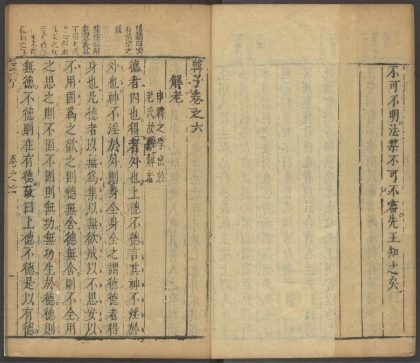 不可不明法禁不可不審先王知之矣
韓子卷之六
解老
申韓之學出於
老氏故解老
德者內也得者外也上德不德言其神不淫於
外也神不淫於外則身全身全之謂德德者得
身也凡德者以無為集以無欲成以不思安以
不用固為之欲之則德無舍德無舍則不全用
之思之則不固不固則無功無功生於德德則
無德不德則在有德故曰上德不德是以有德